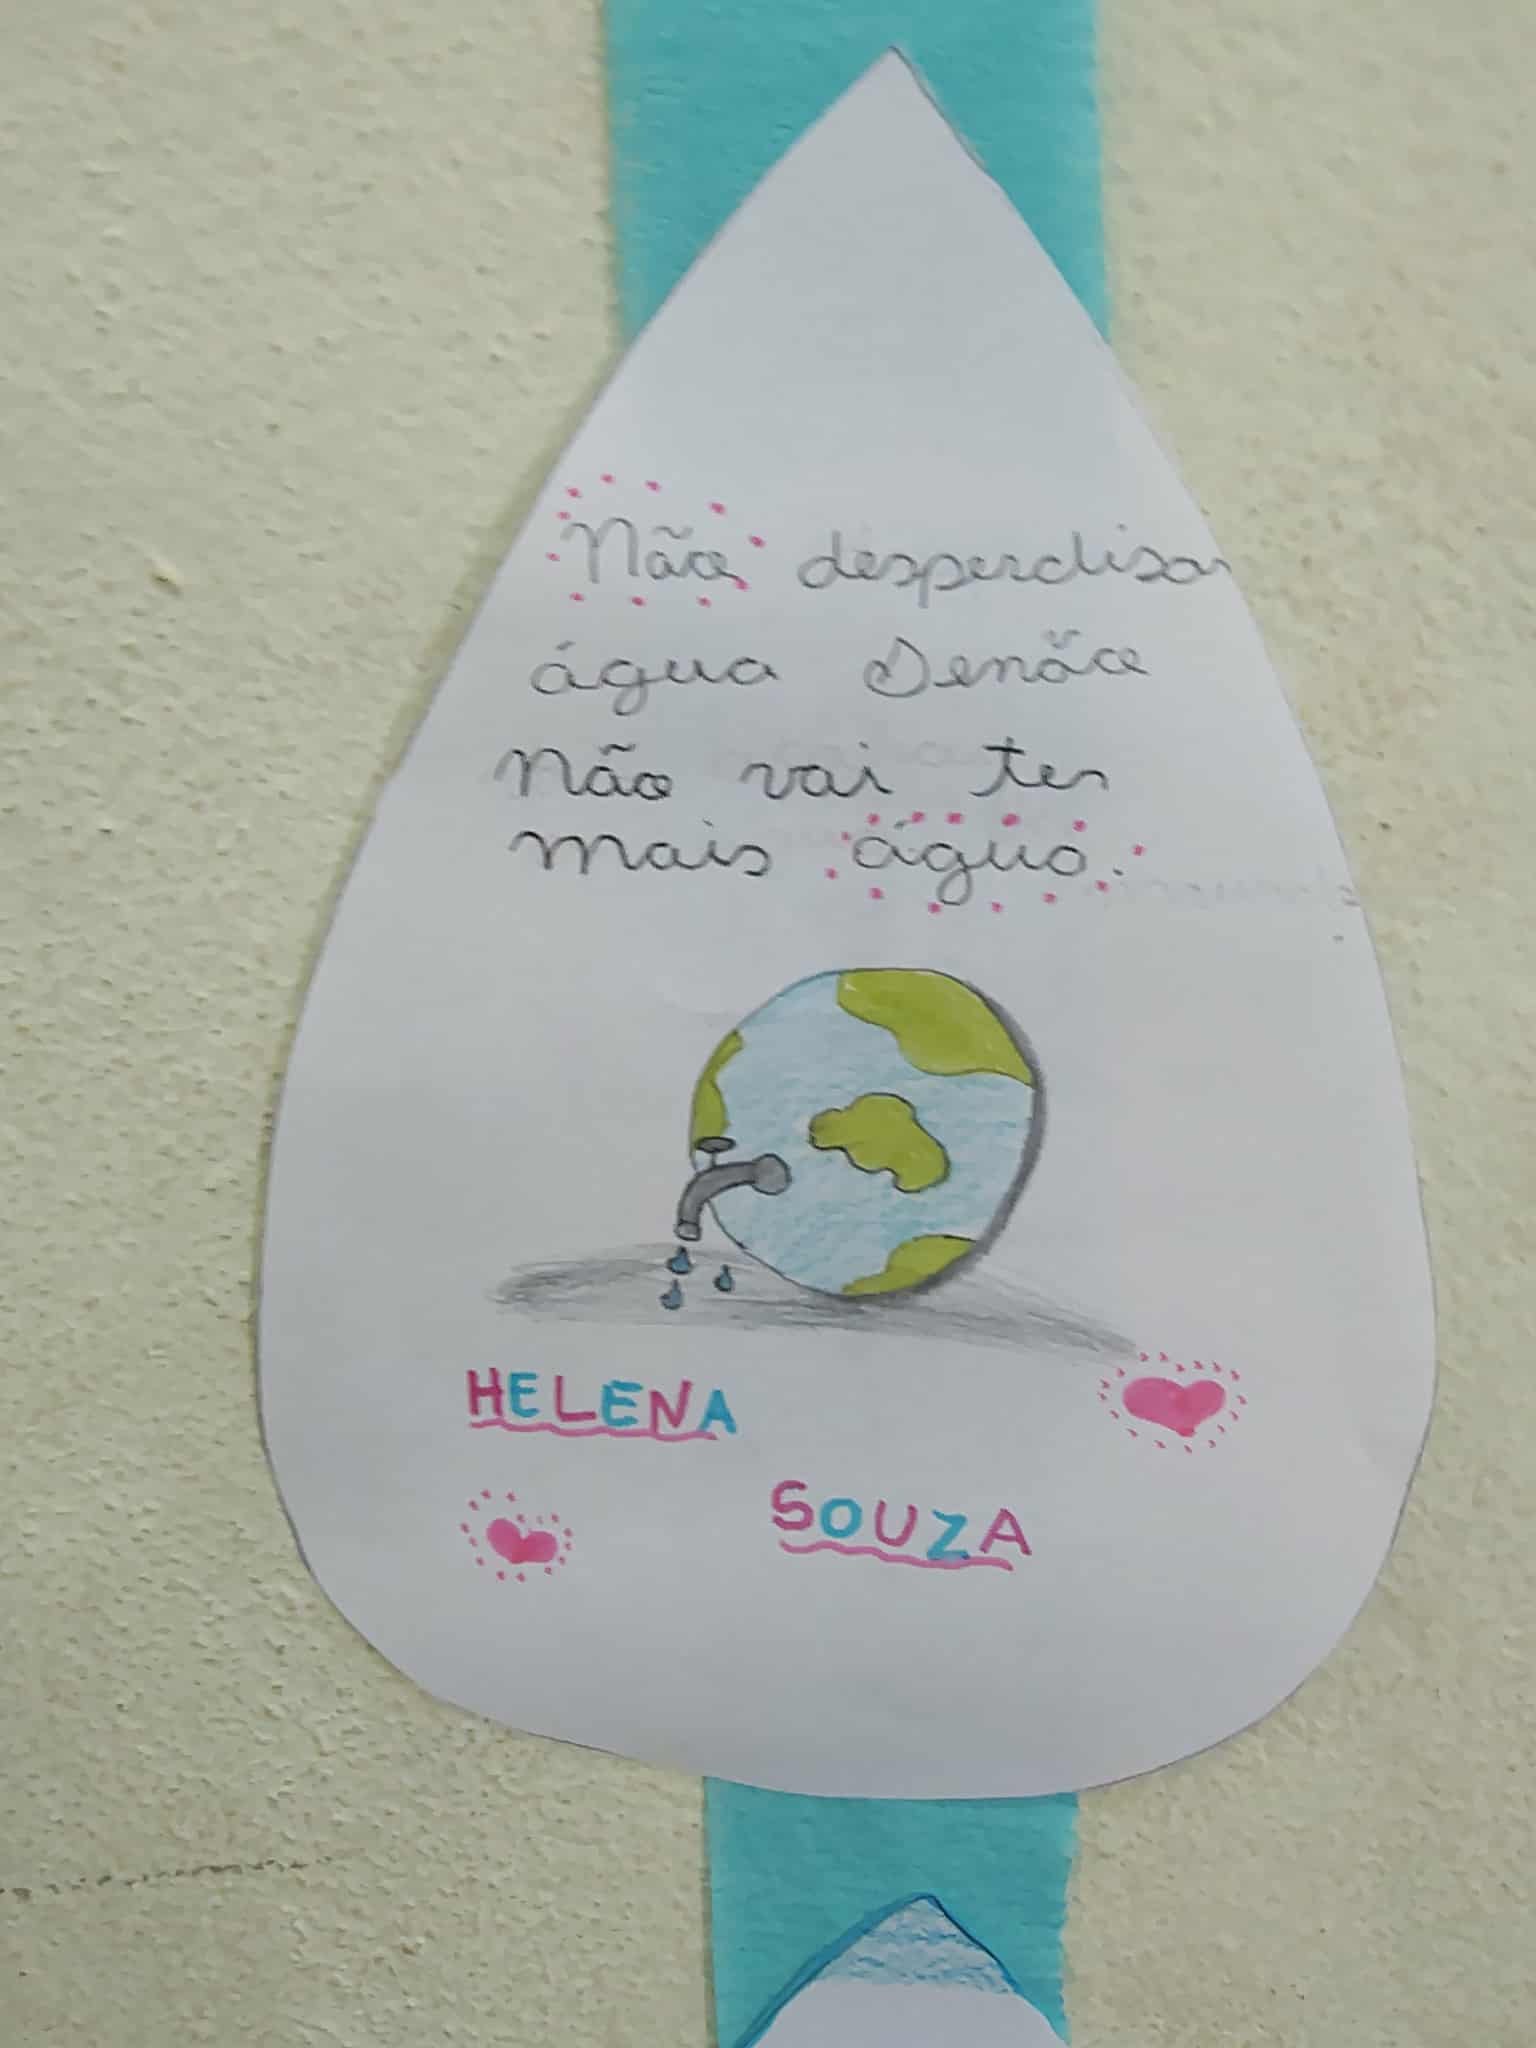 Não desperdisar
água Senão
Não vai ter
mais água.
HELENA
SOUZA